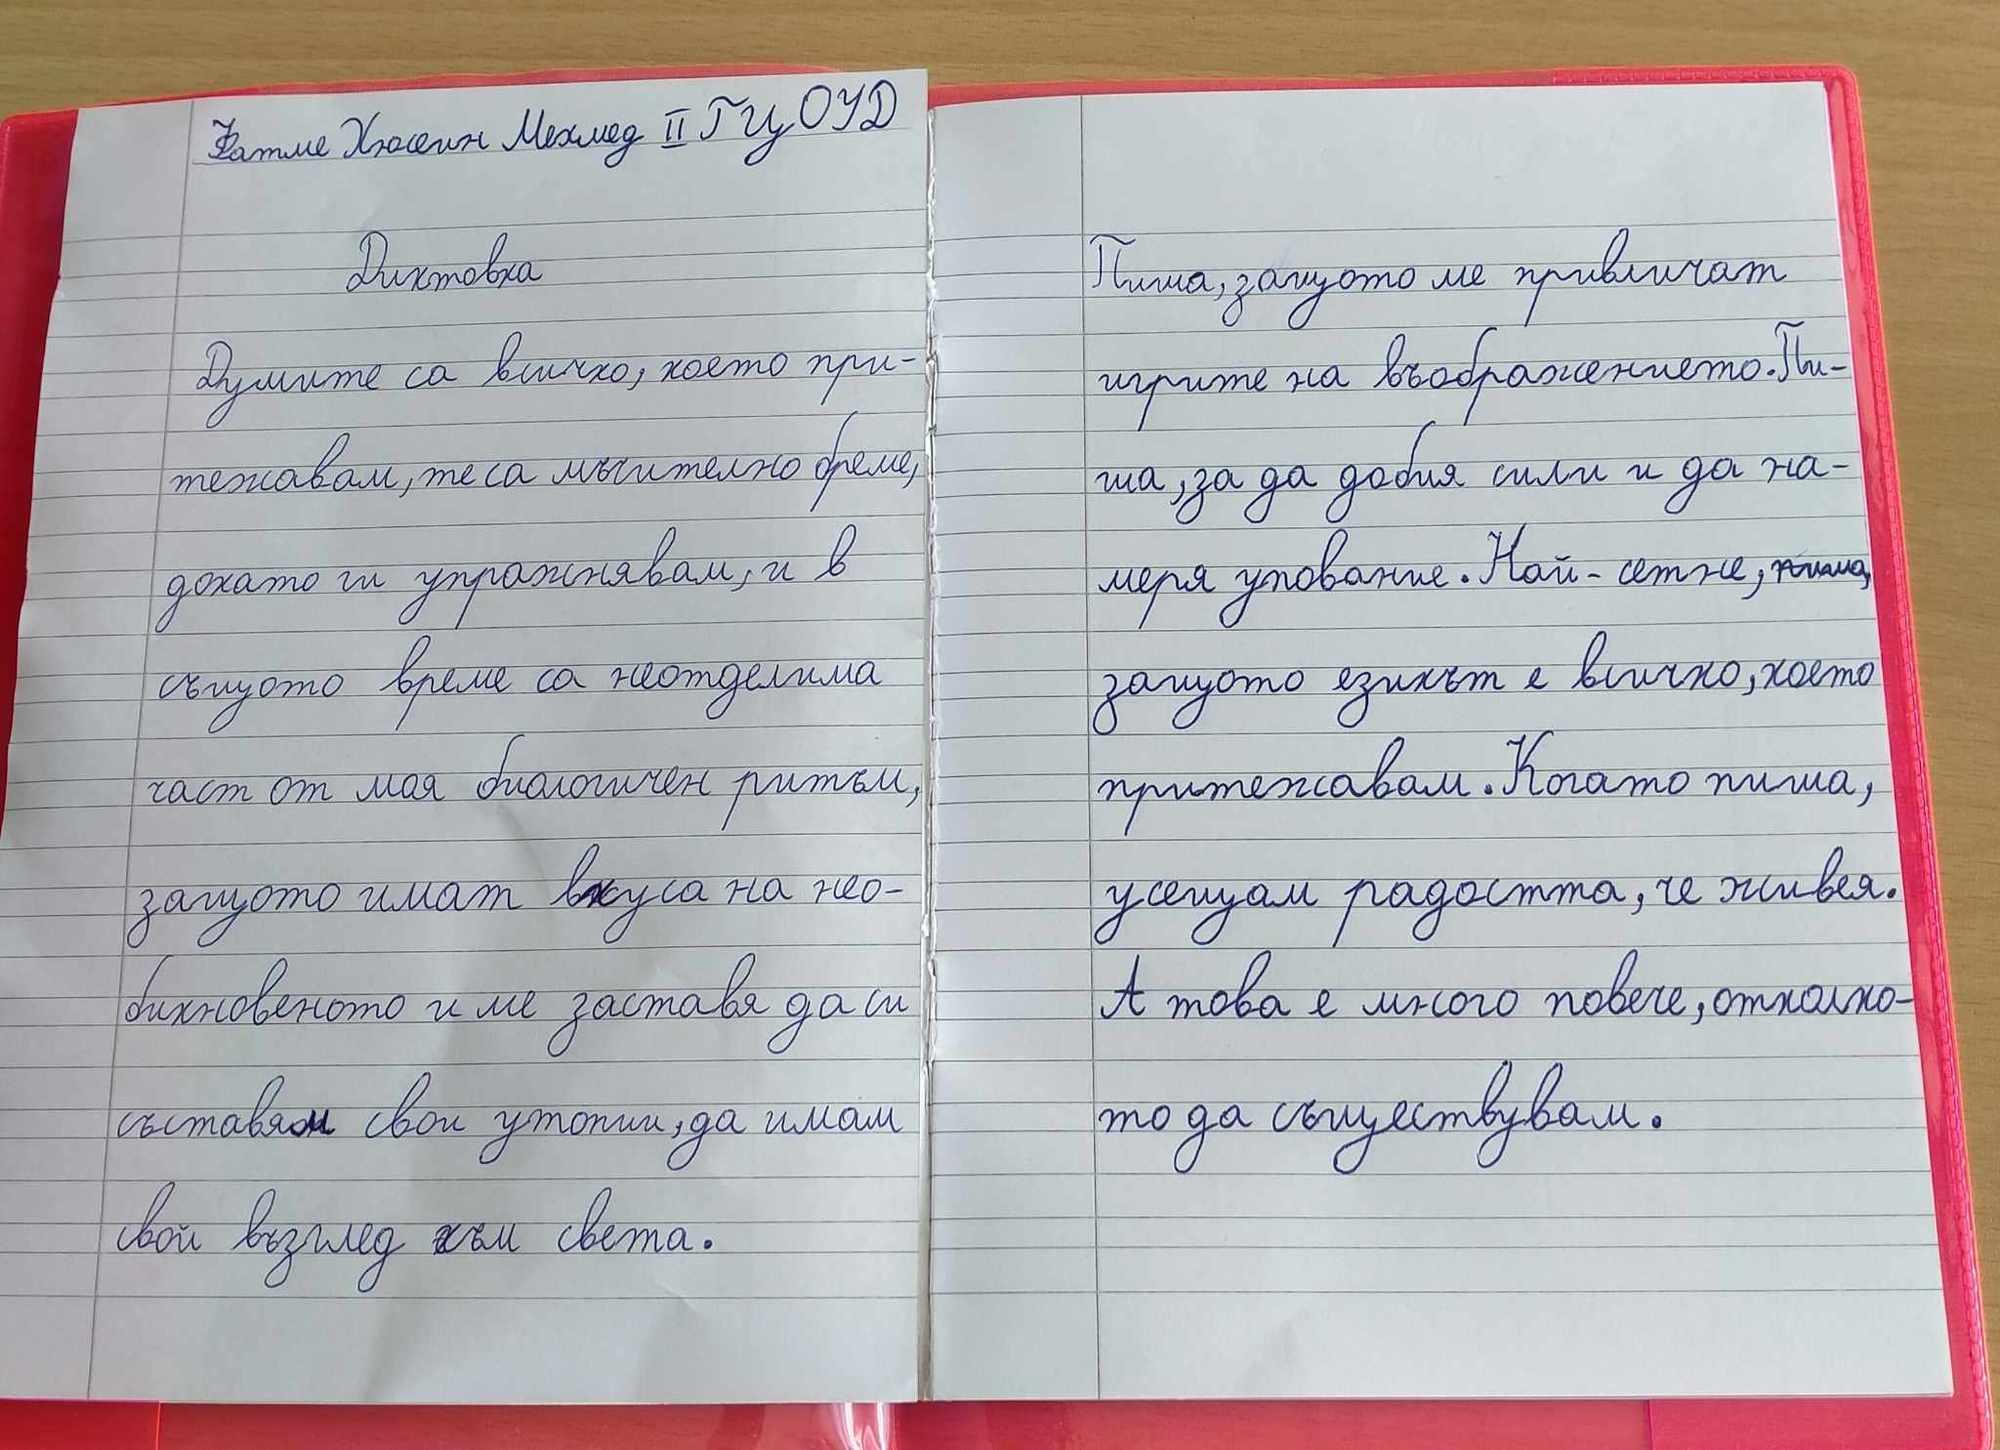 Фатме Хюсеин Мехмед II ГЦОУД
Диктовка
Думите са всичко, което при-
тежавам, те са мъчително бреме,
докато ги упражнявам, и в
същото време са неотделима
част от моя биологичен ритъм,
защото имат вкуса на нео-
бикновеното и ме заставя да си
съставям свои утопии, да имам
свой възглед към света.
Пиша, защото ме привличат
игрите на въображението. Пи-
ша, за да добия сили и да на-
меря упование. Най-сетне, пиша,
защото езикът е всичко, което
притежавам. Когато пиша,
усещам радостта, че живея.
А това е много повече, отколко-
то да съществувам.